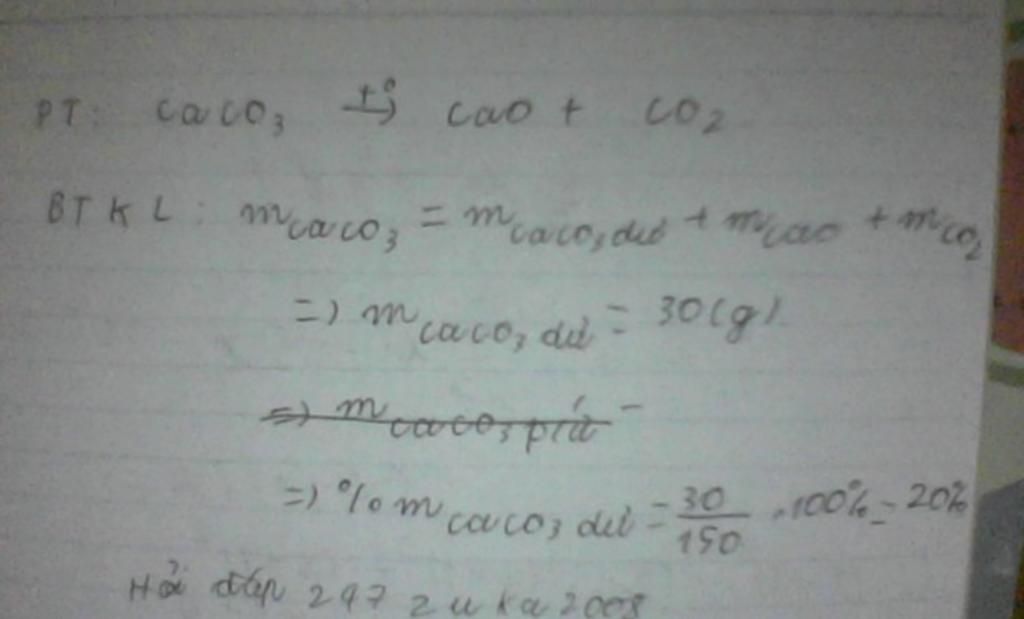 PT: CaCO₃ →(t°) CaO + CO₂
BTKL: m CaCO₃ = m CaCO₃ dư + m CaO + m CO₂
=) m CaCO₃ dư = 30 (g)
=) m CaCO₃ p/ứ =
=) % m CaCO₃ dư = 30/150 . 100% = 20%
Hỏi đáp 247 zuka2008